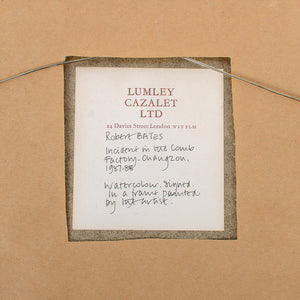 LUMLEY
CAZALET
LTD
24 Davies Street London W1Y 1LH
Robert BATES
Incident in the Comb
Factory. Changzon,
1987-88
Watercolour. Signed.
In a frame painted
by the artist.